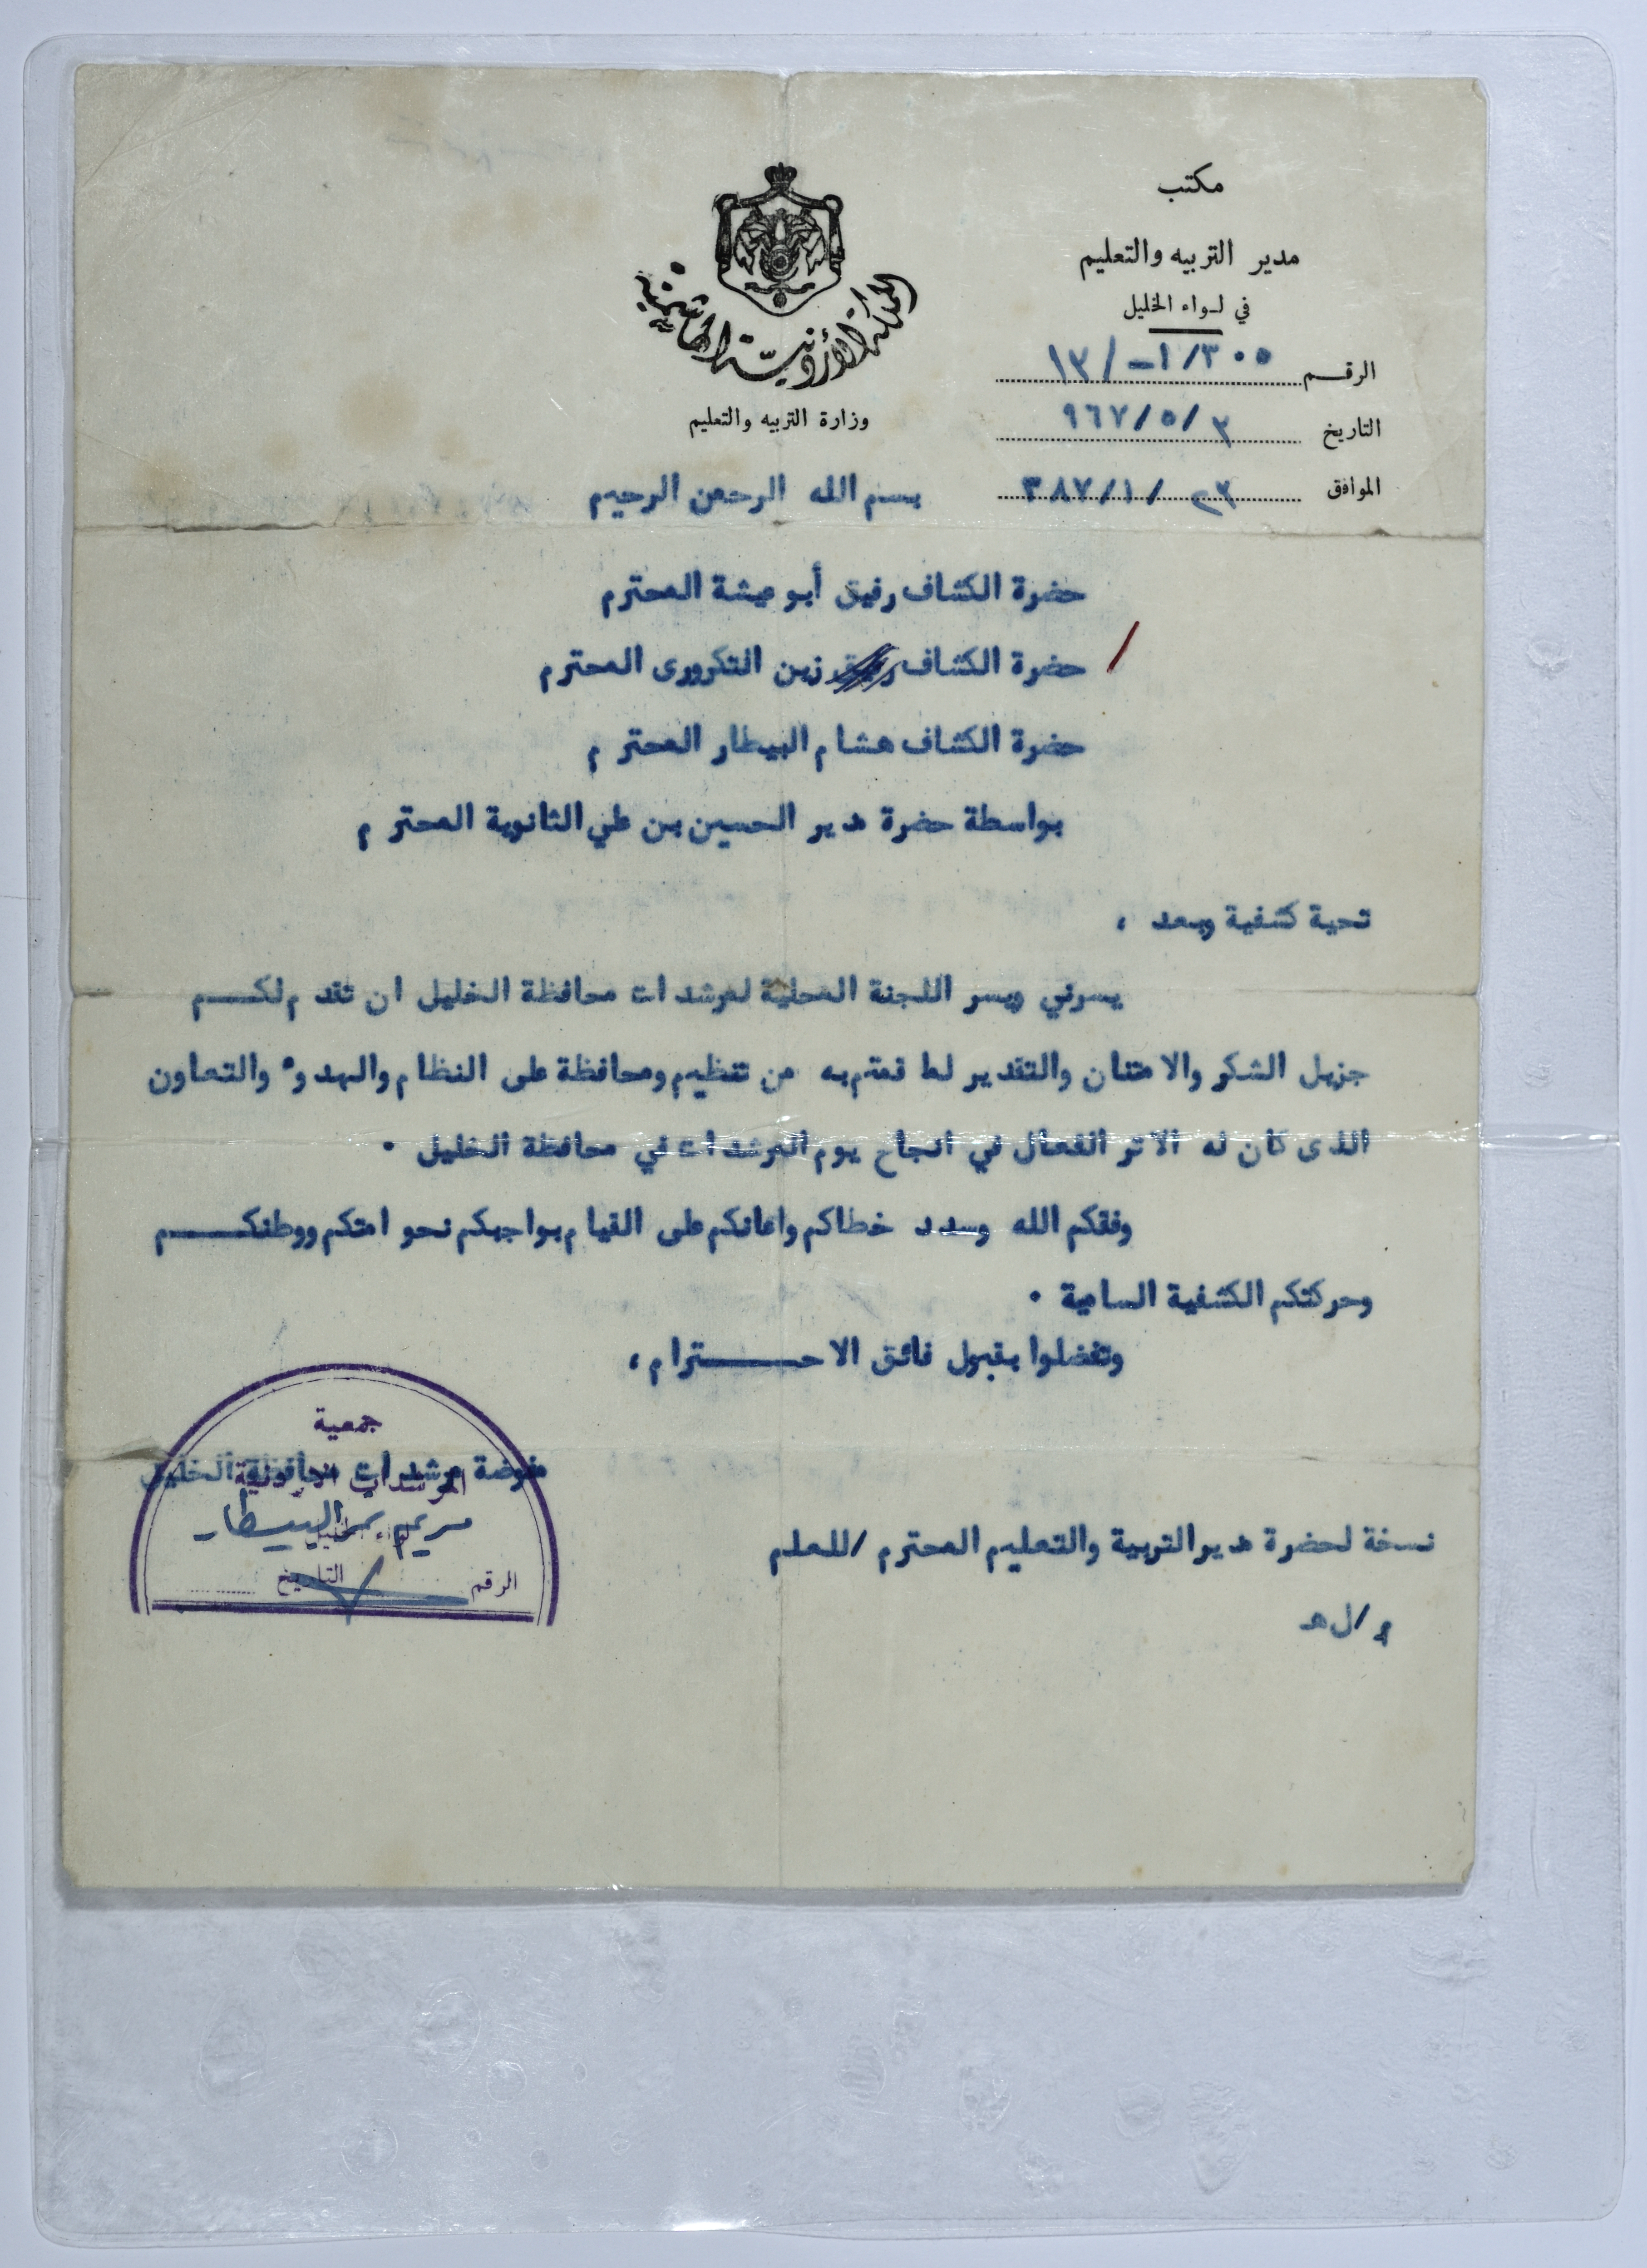 مكتب
مدير التربيه والتعليم
في لـواء الخليل
المملكة الأردنية الهاشمية
وزارة التربيه والتعليم
الرقـــم ١٣/-١/٣٠٥
التاريخ ٩٦٧/٥/٣
الموافق ٣٨٧/١/٢٣
بسم الله الرحمن الرحيم
حضرة الكشاف رفيق أبو عيشة المحترم
حضرة الكشاف زين التكرورى المحترم
حضرة الكشاف هشام البيطار المحترم
بواسطة حضرة مدير الحسين بن علي الثانوية المحترم
تحية كشفية وبعد ،
يسرني ويسر اللجنة المحلية لمرشدات محافظة الخليل ان تقدم لكــــم
جزيل الشكر والامتنان والتقدير لما قمتم به من تنظيم ومحافظة على النظام والهدوء والتعاون
الذى كان له الاثر الفعال في انجاح يوم المرشدات في محافظة الخليل .
وفقكم الله وسدد خطاكم واعانكم على القيام بواجبكم نحو امتكم ووطنكـــــم
وحركتكم الكشفية السامية .
وتفضلوا بقبول فائق الاحـــــــترام ،
جمعية
مفوضة مرشدات محافظة الخليل
المرشدات الاردنية
مريم البيطار
لواء الخليل
الرقم التاريخ
نسخة لحضرة مدير التربية والتعليم المحترم /للعلم
م/ل هـ